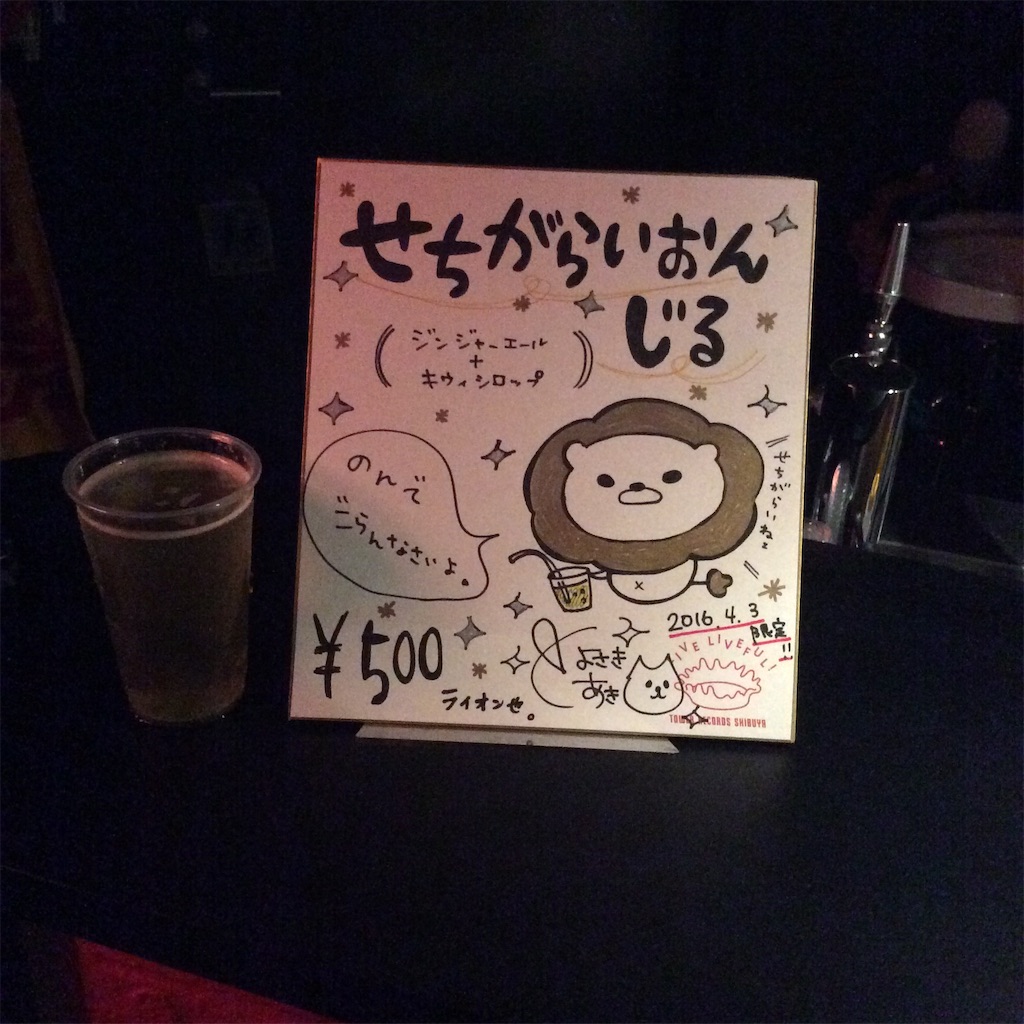 せちがらいおん
じる
(ジンジャーエール
+
キウィシロップ)
のんで
ごらんなさいよ。
せちがらいねェ
¥500
ライオン也。
よさき
あき
2016.4.3
限定!!
LIVE LIVEFUL!
TOWER RECORDS SHIBUYA